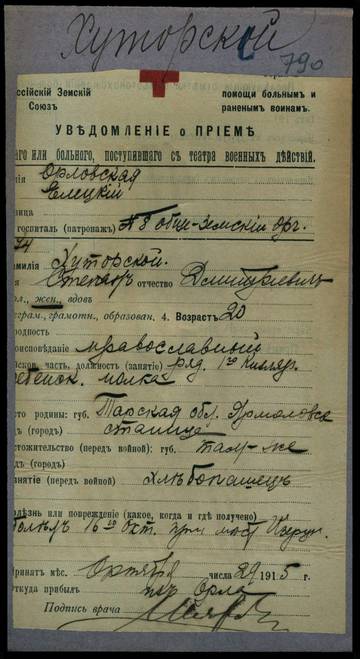 Хуторской
790
оссійскій Земскій
Союзъ
помощи больнымъ и
раненымъ воинамъ.
УВѢДОМЛЕНІЕ о ПРІЕМѢ
аго или больного, поступившаго съ театра военныхъ дѣйствій.
нія Орловская
Елецкій
ница
госпиталь (патронажъ) № 8 общ-Земскій орг.
74
милія Хуторской.
я Степанъ отчество Дмитріевичъ
ол., жен., вдовъ
грам., грамотн., образован. 4. Возрастъ 20
родность
роисповѣданіе православный
нская. часть. должность (занятіе) ряд. 1го Кизляр.
ребенск. полка
сто родины: губ. Тарская обл. Ермоловса
дъ (городъ) станица
стожительство (передъ войной): губ. там-же
дъ (городъ)
нятіе (передъ войной) хлѣбопашецъ
олѣзнь или поврежденіе (какое, когда и гдѣ получено)
болѣлъ 16го окт. при мѣст.
ринятъ мѣс. Октября числа 29 1915 г.
ткуда прибылъ изъ Орла
Подпись врача